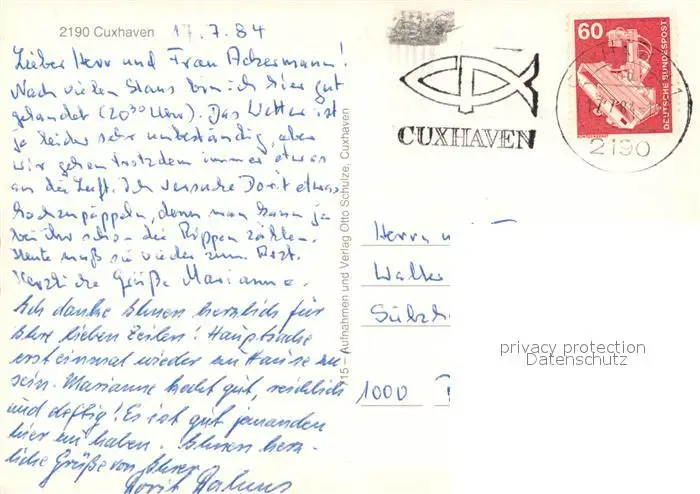 2190 Cuxhaven 17.7.84
Lieber Herr und Frau Ackermann!
Nach vielen Staus bin ich hier gut
gelandet (20³⁰ Uhr). Das Wetter ist
ja leider sehr unbeständig, aber
wir gehen trotzdem immer etwas
an die Luft. Ich versuche Dorit etwas
hochzupäppeln, denn man kann ja
bei ihr schon die Rippen zählen.
Heute muß sie wieder zum Arzt.
Herzliche Grüße Marianne.
Ich danke Ihnen herzlich für
Ihre lieben Zeilen! Hauptsache
erst einmal wieder zu Hause zu
sein. Marianne kocht gut, reichlich
und deftig! Es ist gut jemanden
hier zu haben. Ihnen herz-
liche Grüße von Ihrer
Dorit
15 – Aufnahmen und Verlag Otto Schulze, Cuxhaven
CUXHAVEN
60
DEUTSCHE BUNDESPOST
2190
Herrn u
Walter
Sülzh
1000
privacy protection
Datenschutz